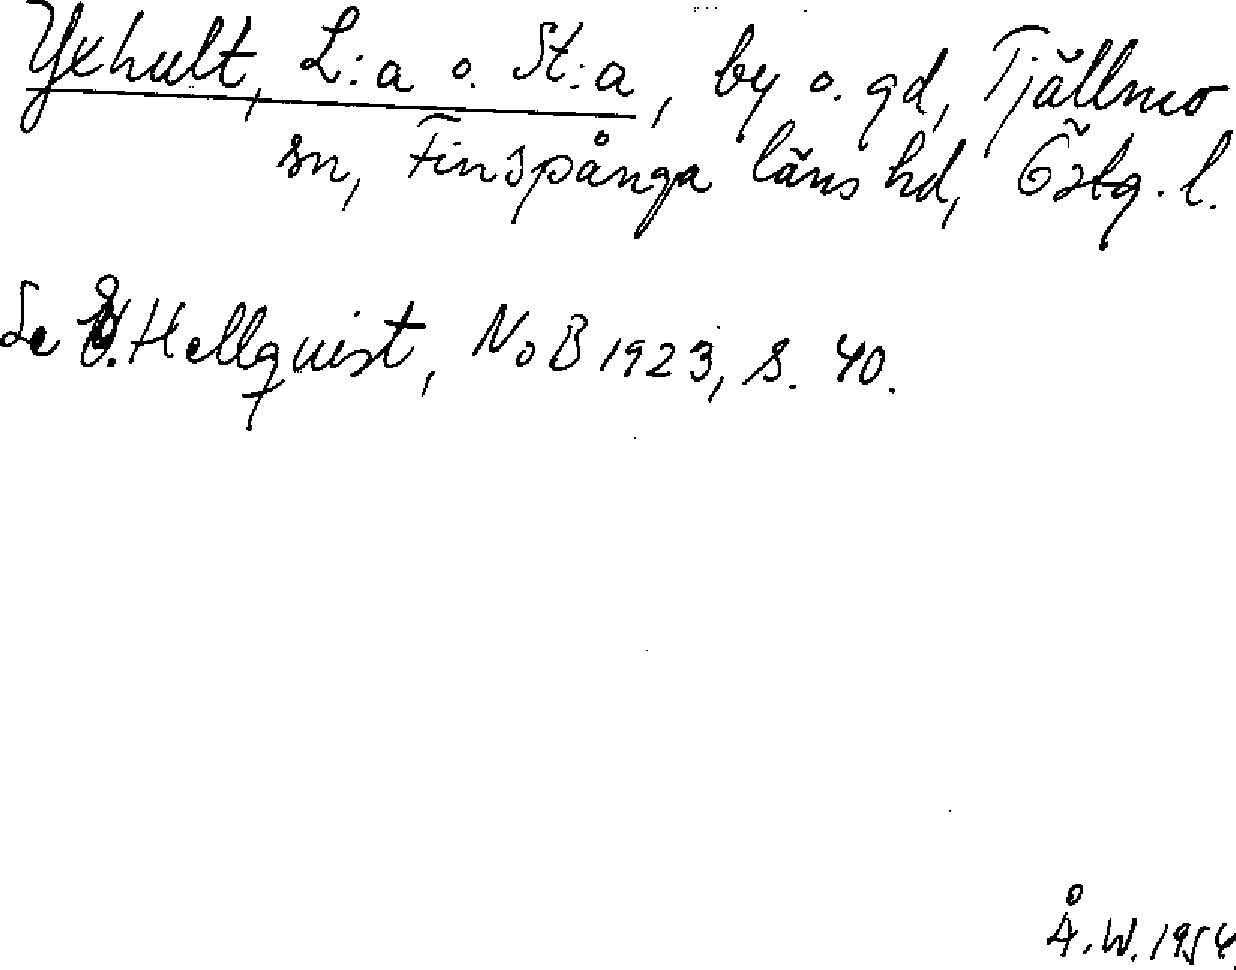 Yxhult, L:a o. St:a, by o. gd, Tjällmo
sn, Finspånga läns hd, Östg. l.
Se E. Hellquist, NoB 1923, s. 40.
Å.W. 1954